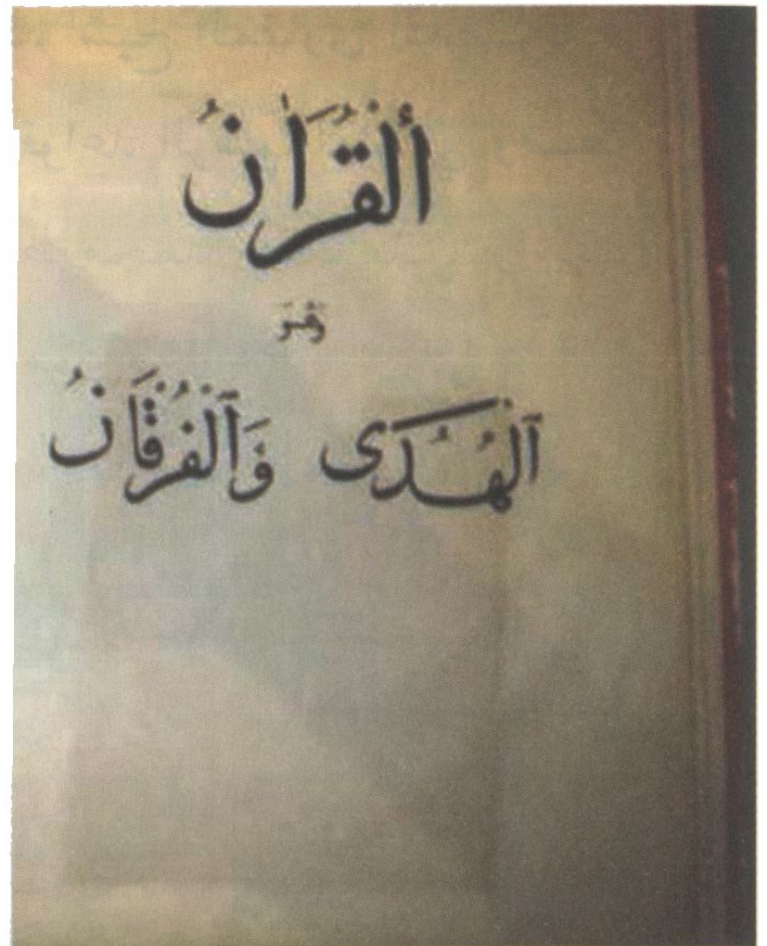 ألْقُرْاٰنُ
وَهُوَ
آلْهُدَى وَآلْفُرْقَانُ